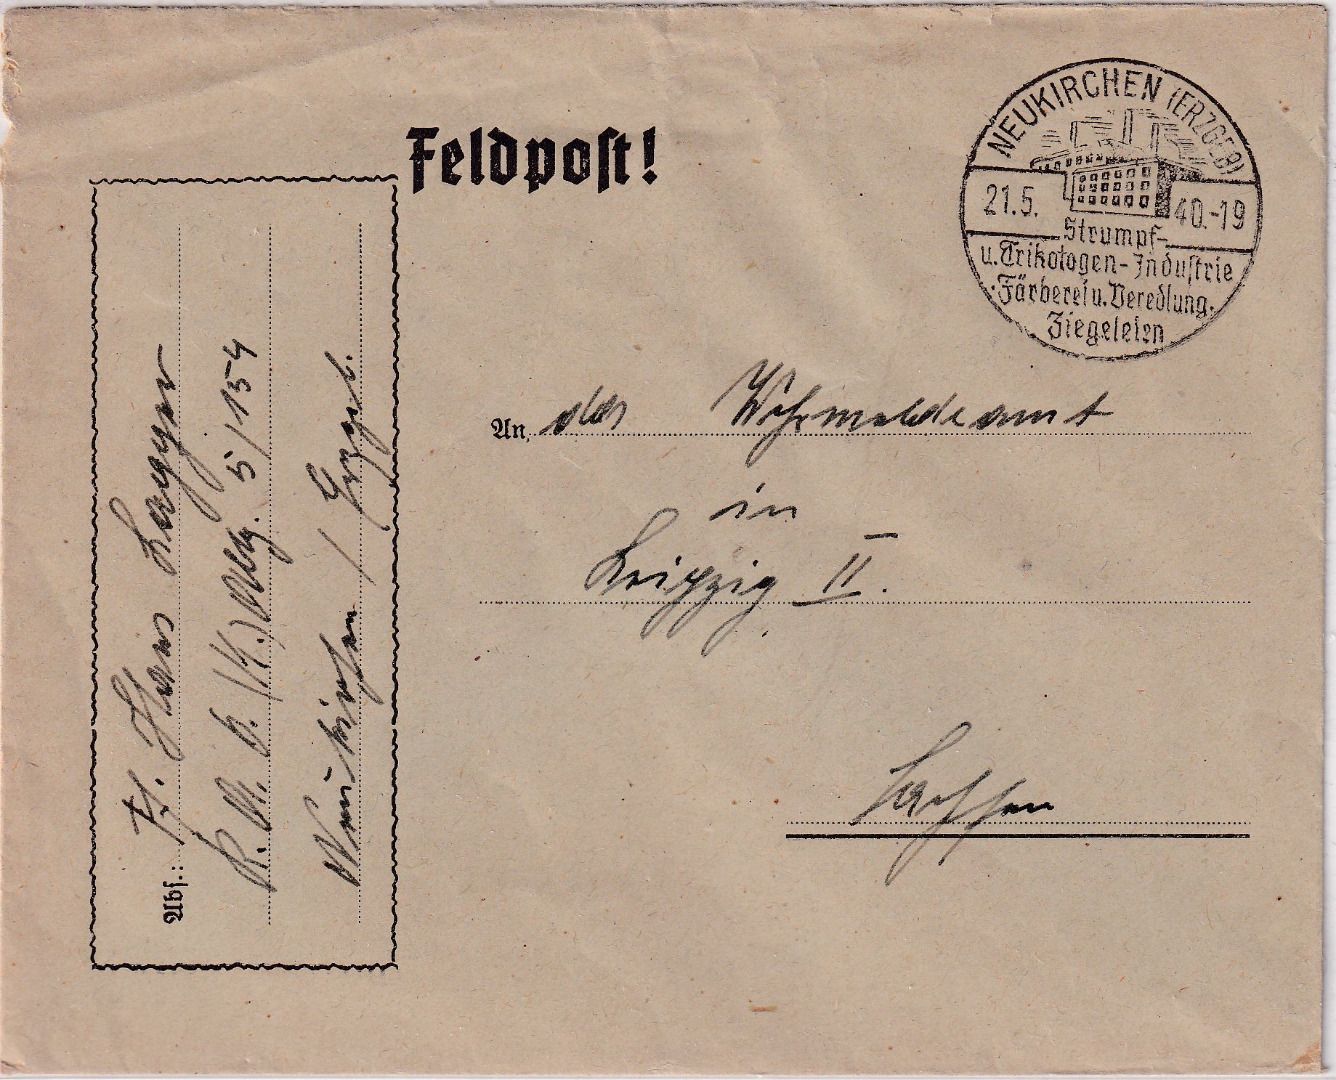 Feldpost!
NEUKIRCHEN (ERZGEB)
21.5. 40.-19
Strumpf-
u. Trikotagen-Industrie
·Färberei u. Veredlung·
Ziegeleien
An das Wehrmeldeamt
in
Leipzig II.
Sachsen
Abs.: Hans
5/154
Neukirchen / Erzgeb.